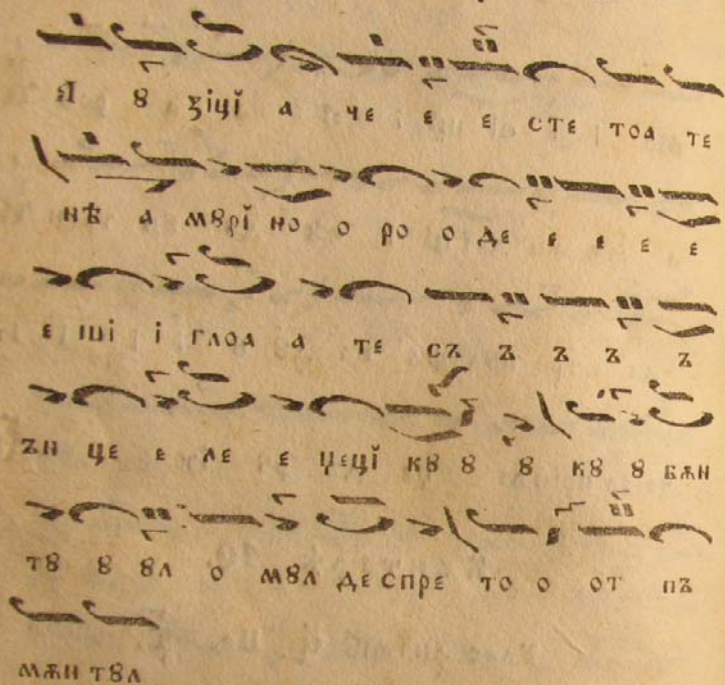 Ꙗ ꙋ ꙁіцї а че е е сте тоа те
нѣ а мꙋрї но о ро о де е е е е
е ші і глоа а те съ ъ ъ ъ ъ
ън це е ле е џецї кꙋ ꙋ ꙋ кꙋ ꙋ вѫн
тꙋ ꙋ ꙋл о мꙋл деспре то о от пъ
мѫн тꙋл